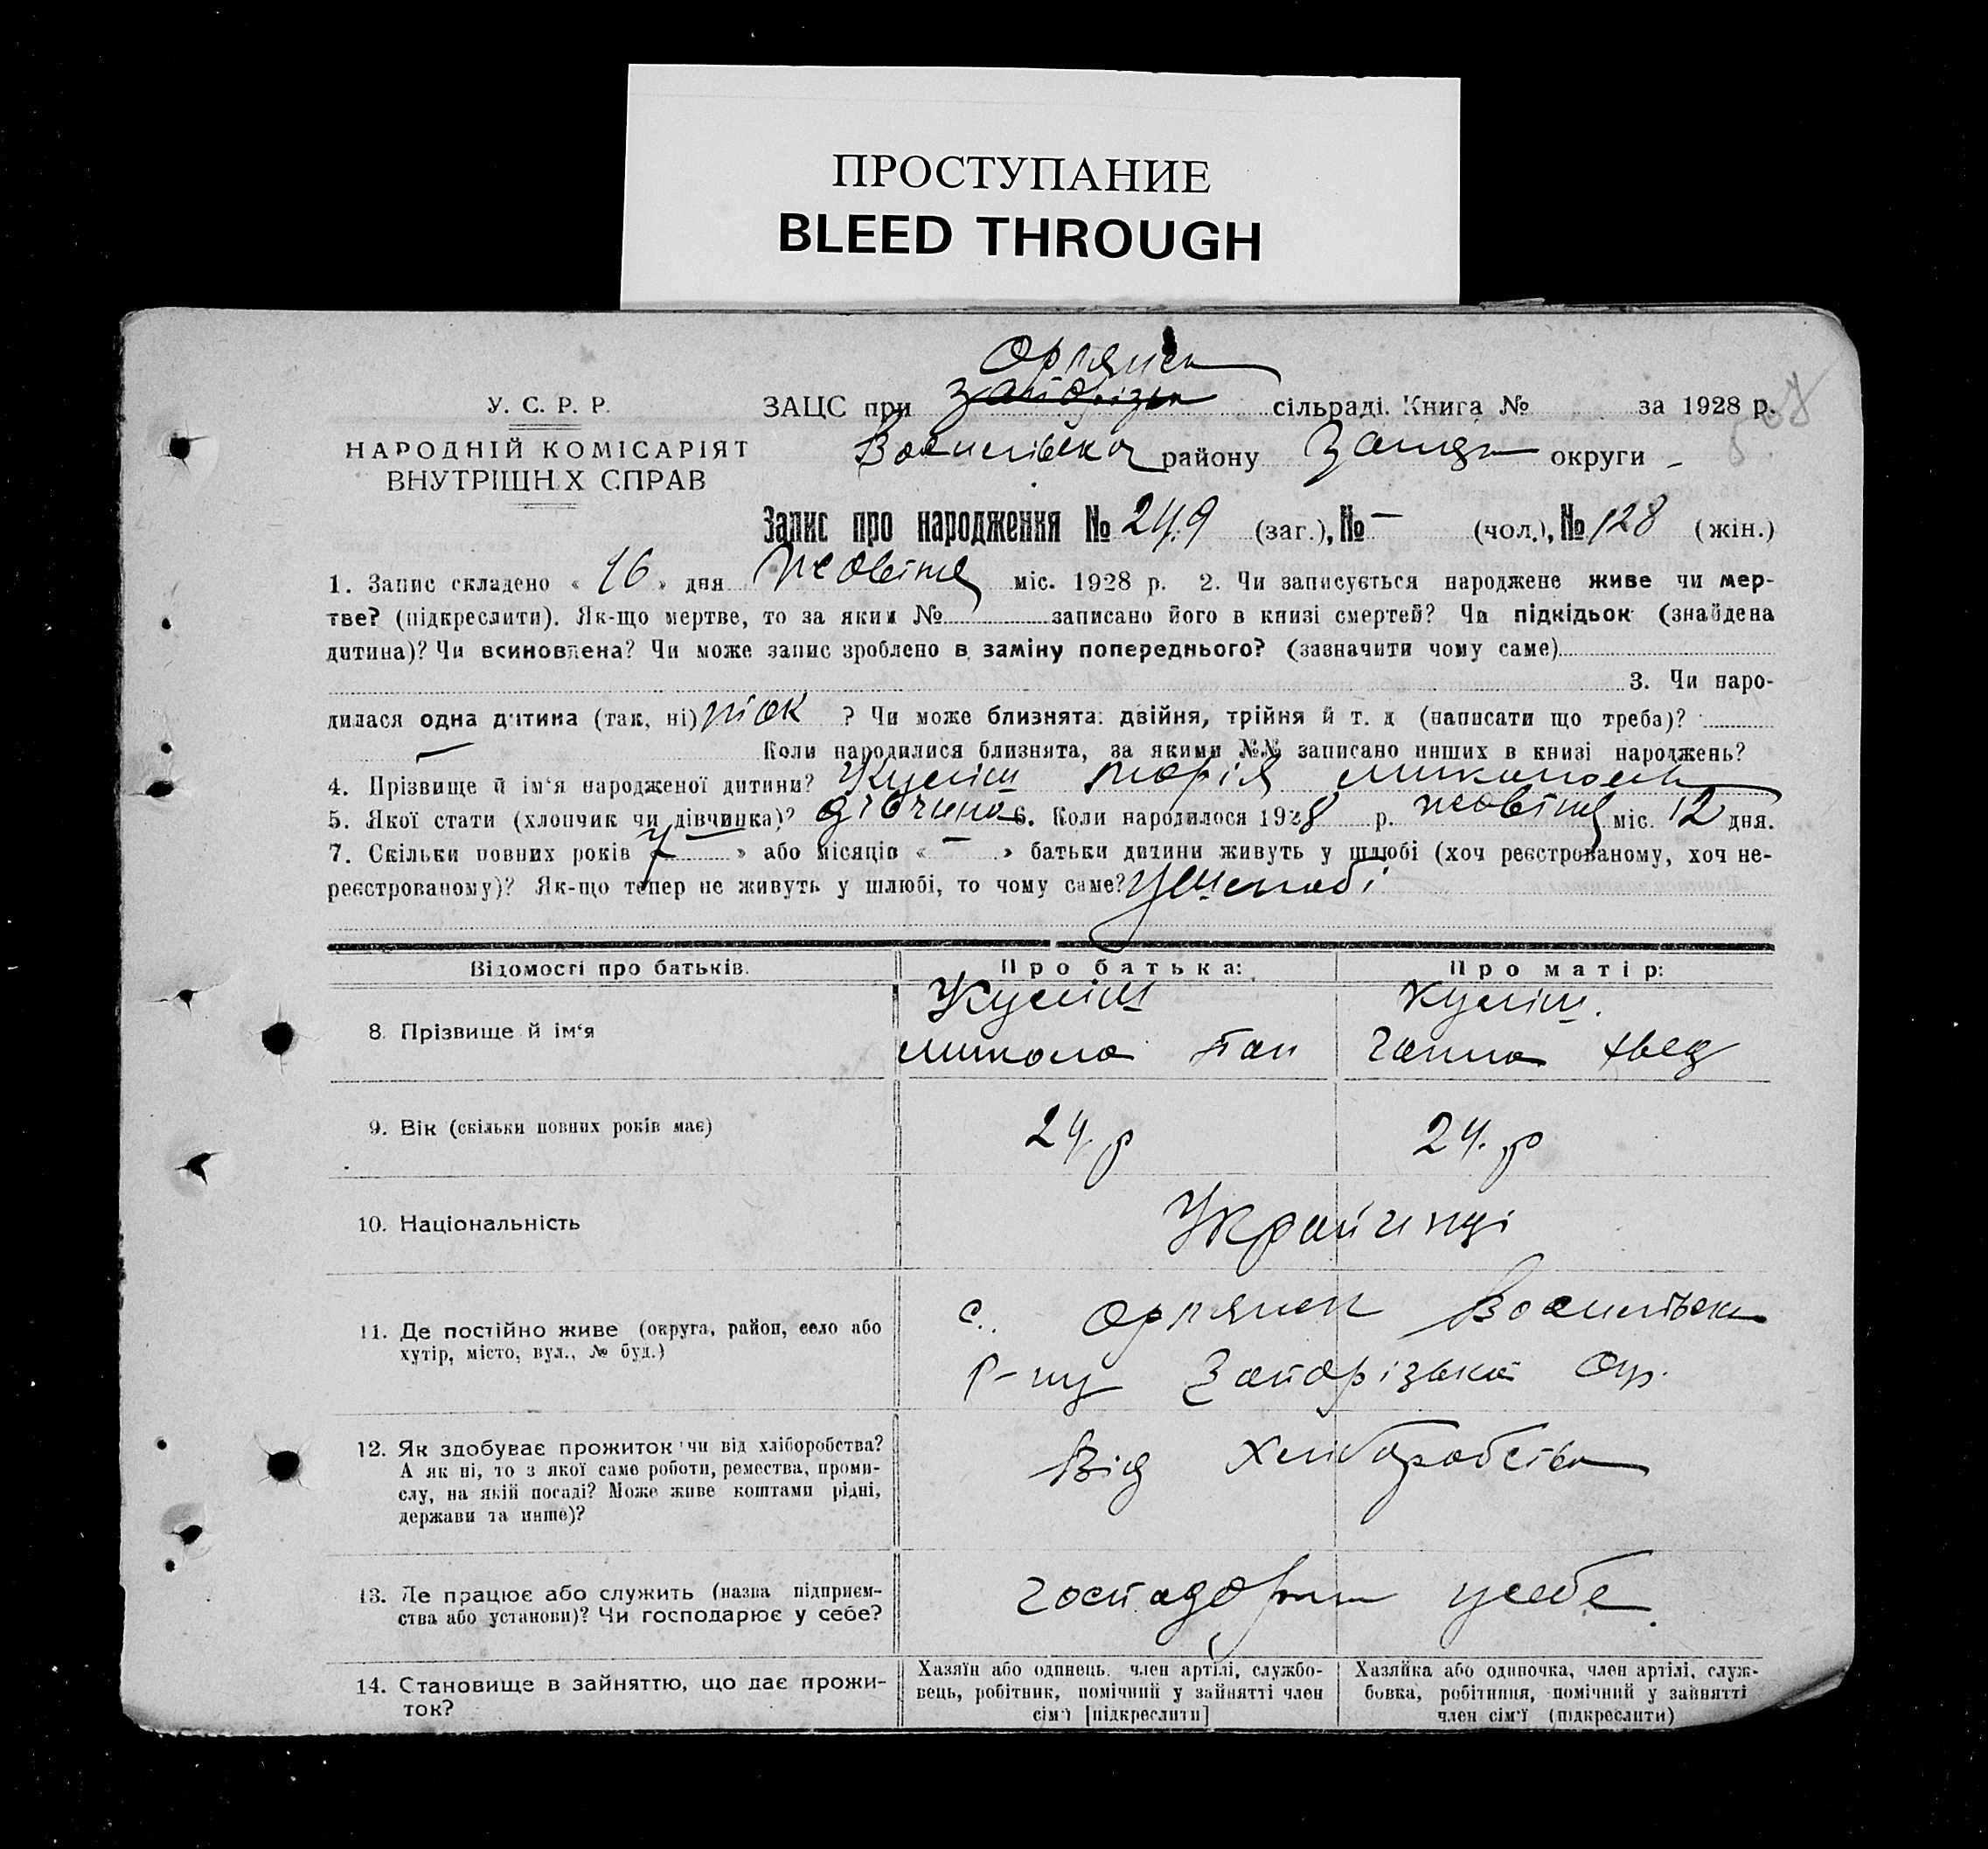 ПРОСТУПАНИЕ
BLEED THROUGH
Орлянськ
У. С. Р. Р. ЗАЦС при Запорізьк сільраді. Книга № за 1928 р.
НАРОДНІЙ КОМІСАРІЯТ Василівськог району Запор округи
ВНУТРІШНІХ СПРАВ
Запис про народження № 249 (заг.), № — (чол.), № 128 (жін.)
1. Запис складено « 16 » дня Жовтня міс. 1928 р. 2. Чи записується народжене живе чи мер-
тве? (підкреслити). Як-що мертве, то за яким № записано його в книзі смертей? Чи підкідьок (знайдена
дитина)? Чи всиновлена? Чи може запис зроблено в заміну попереднього? (зазначити чому саме)
3. Чи наро-
дилася одна дитина (так, ні) так ? Чи може близнята: двійня, трійня й т. д (написати що треба)?
— Коли народилися близнята, за якими №№ записано инших в книзі народжень?
4. Прізвище й ім'я народженої дитини? Куліш Марія Миколаєв
5. Якої стати (хлопчик чи дівчинка)? дівчина 6. Коли народилося 1928 р. жовтня міс. 12 дня.
7. Скільки повних років 7 » або місяців « — » батьки дитини живуть у шлюбі (хоч реєстрованому, хоч не-
реєстрованому)? Як-що тепер не живуть у шлюбі, то чому саме? у шлюбі
Відомості про батьків. Про батька: Про матір:
Куліш Куліш.
8. Прізвище й ім'я
Микола Ганна
9. Вік (скільки повних років має) 24. р 24. р
10. Національність Українці
с. Орлянськ Василівськ
11. Де постійно живе (округа, район, село або
хутір, місто, вул., № буд.)
р-ну Запорізької окр.
12. Як здобуває прожиток чи від хліборобства? Від Хліборобства
А як ні, то з якої саме роботи, ремества, проми-
слу, на якій посаді? Може живе коштами рідні,
держави та инше)?
13. Де працює або служить (назва підприєм- господарюють у себе
ства або установи)? Чи господарює у себе?
14. Становище в зайняттю, що дає прожи-
ток?
Хазяїн або одинець, член артілі, службо-
вець, робітник, помічний у зайнятті член
сім'ї [підкреслити]
Хазяйка або одиночка, член артілі, служ-
бовка, робітниця, помічний у зайнятті
член сім'ї (підкреслити)